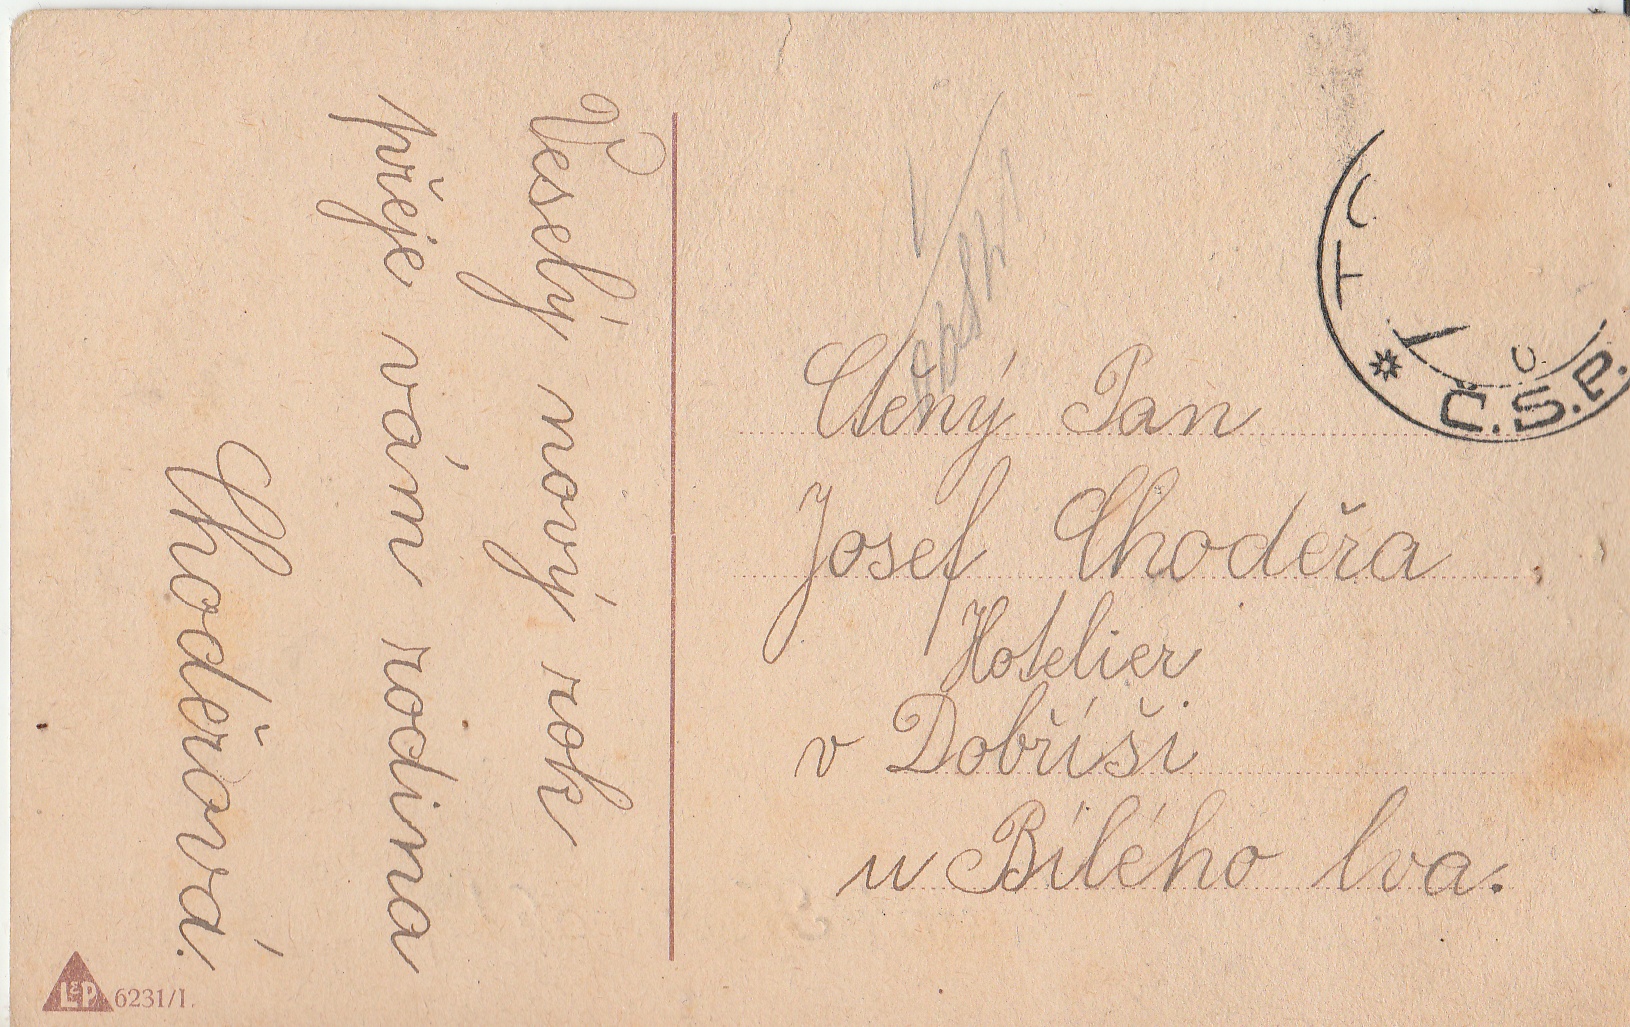 Veselý nový rok
přeje vám rodina
Choděrová.
Ctěný Pan
Josef Choděra
Hotelier
v Dobříši
u Bílého lva.
Č.S.P.
L&P 6231/I.